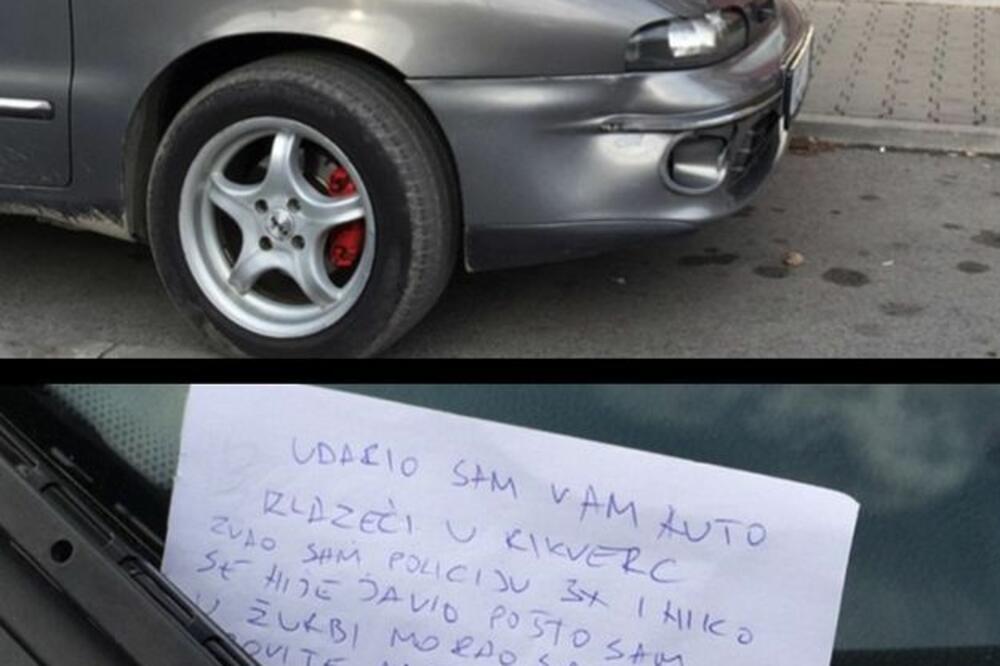 UDARIO SAM VAM AUTO
IZLAZEĆI U RIKVERC
ZVAO SAM POLICIJU 3X I NIKO
SE NIJE JAVIO POŠTO SAM
U ŽURBI MORAO